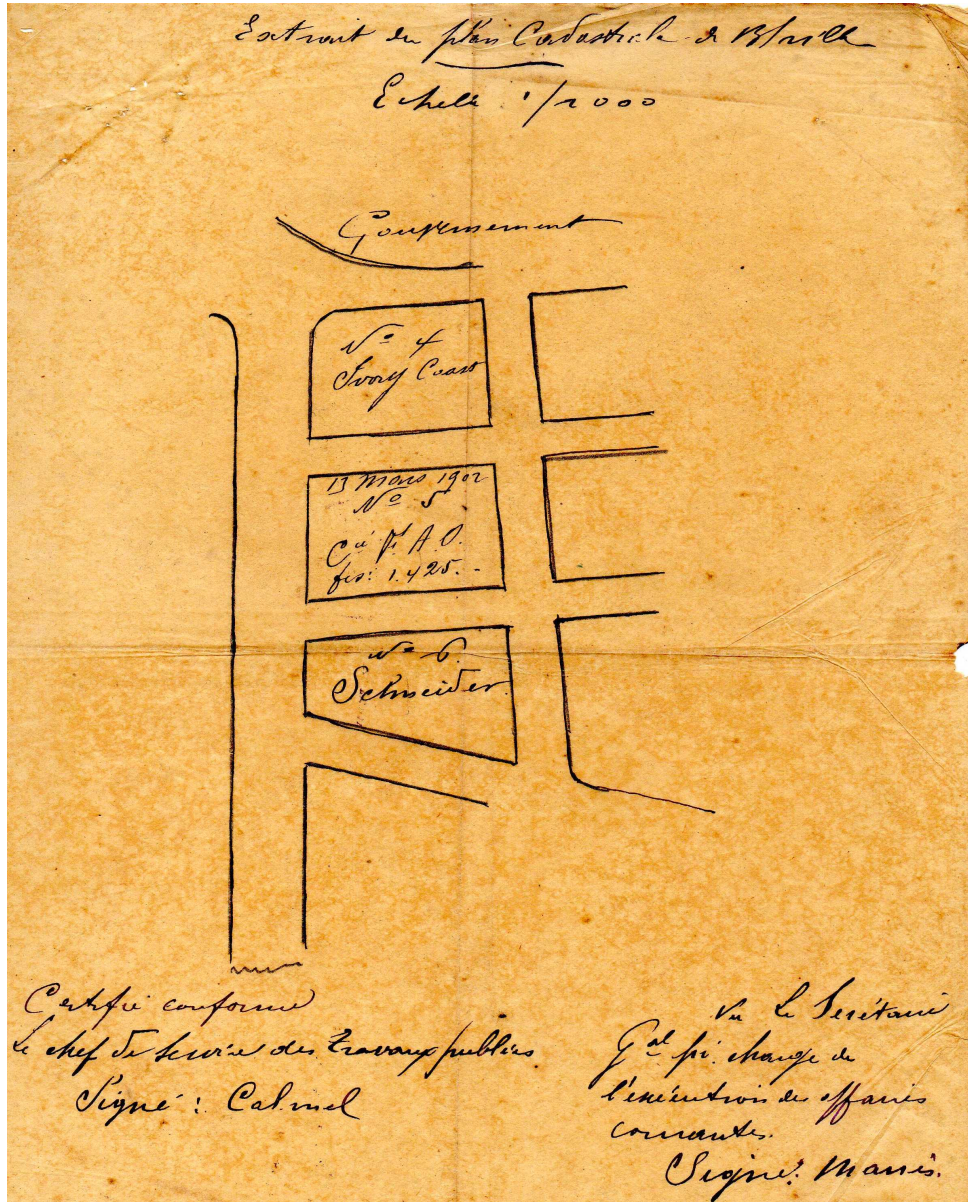 Extrait du plan Cadastrale de Blville
Echelle 1/2000
Gouvernement
No 4
Ivory Coast
13 Mars 1902
No 5
Cie F. A. O.
frs: 1.425.-
No 6.
Schneider
Certifié conforme
Le chef de service des Travaux publics
Signé : Calmel
Vu Le Secrétaire
Gal pi. chargé de
l'exécution des affaires
courantes.
Signé: